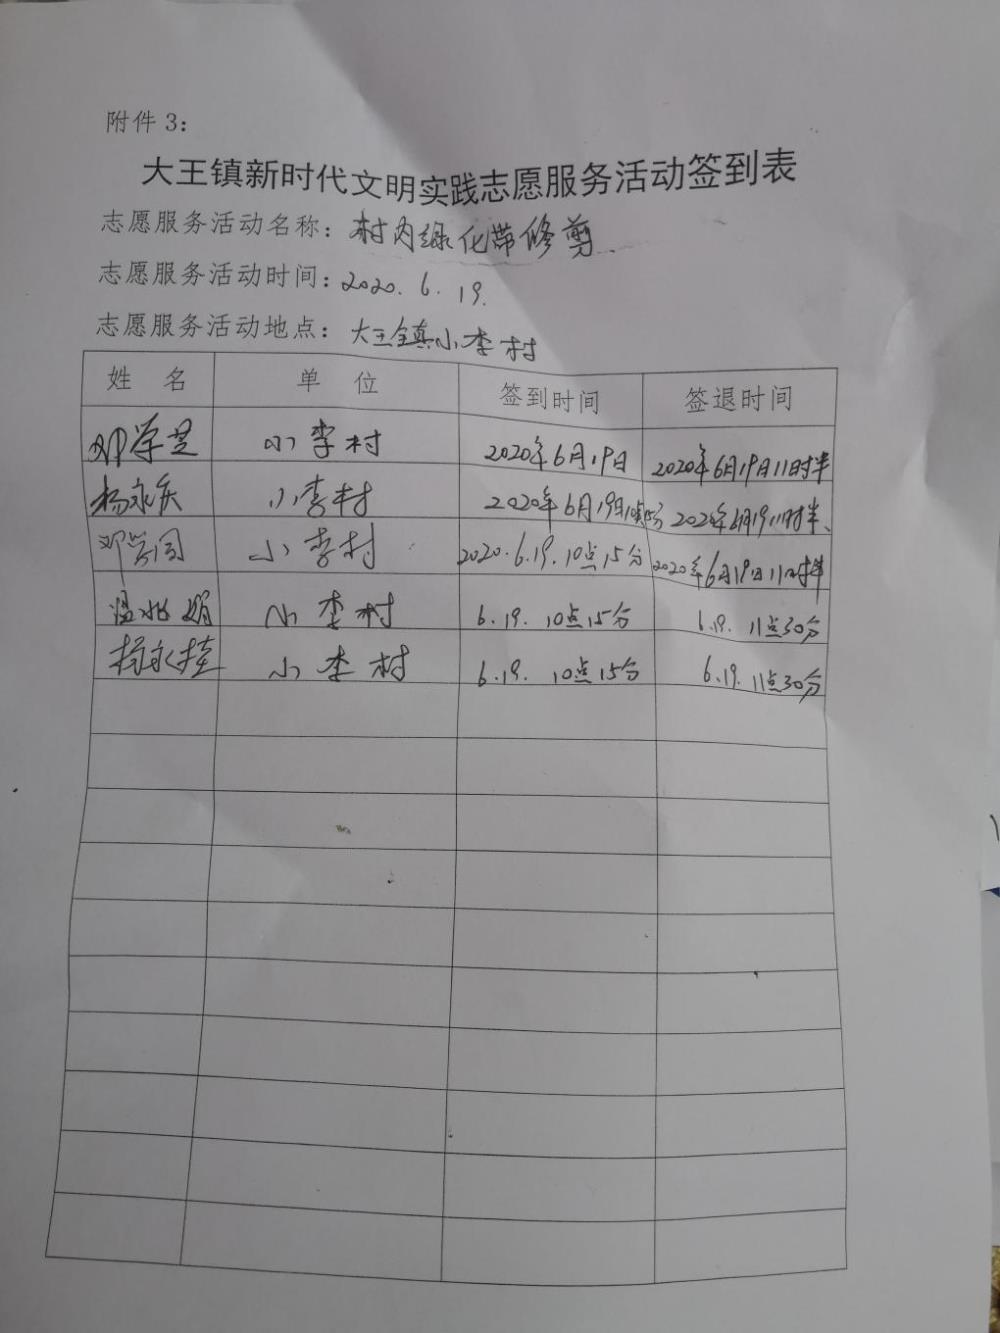 附件 3：
大王镇新时代文明实践志愿服务活动签到表
志愿服务活动名称：村内绿化带修剪
志愿服务活动时间：2020.6.19.
志愿服务活动地点：大王镇小李村
姓 名 单 位 签到时间 签退时间
邓学 小李村 2020年6月19日 2020年6月19日11时半
杨永庆 小李村 2020年6月19日 2020年6月19 11时半
邓学同 小李村 2020.6.19.10点15分 2020年6月19日11时半
温 娟 小李村 6.19. 10点15分 6.19. 11点30分
杨永 小李村 6.19. 10点15分 6.19. 11点30分